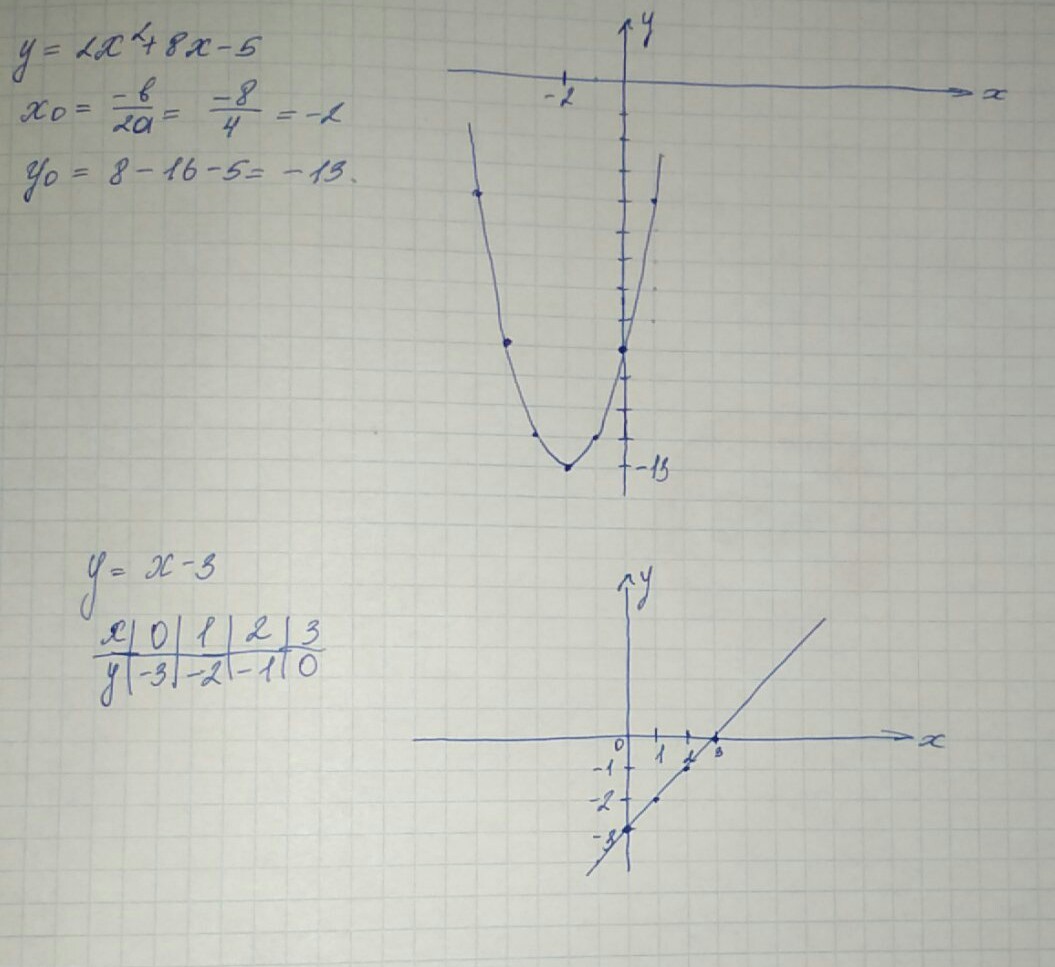 y = 2x²+8x-5
x₀ = -b/2a = -8/4 = -2
y₀ = 8-16-5 = -13.
y
-2
x
-13
y = x-3
x|0|1|2|3
y|-3|-2|-1|0
y
0 1 2 3 x
-1
-2
-3